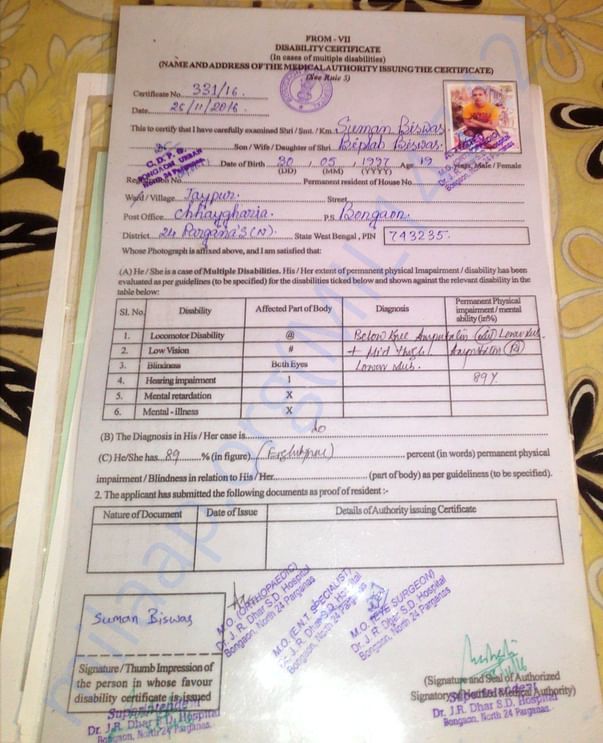 FROM - VII
DISABILITY CERTIFICATE
(In cases of multiple disabilities)
(NAME AND ADDRESS OF THE MEDICAL AUTHORITY ISSUING THE CERTIFICATE)
(See Rule 3)
Certificate No. 331/16.
Date 26/11/2016
This to certify that I have carefully examined Shri / Smt. / Km. Suman Biswas
Son / Wife / Daughter of Shri Biplab Biswas.
C.D.P.O.
BONGAON URBAN
North 24 Parganas
Date of Birth 30 05 1997 Age 19 years, Male / Female
(DD) (MM) (YYYY)
Registration No. Permanent resident of House No.
Ward / Village Jaypur. Street
Post Office Chhaygharia. P.S. Bongaon.
District 24 Pargana's (N). State West Bengal, PIN 743235.
Whose Photograph is affixed above, and I am satisfied that:
(A) He / She is a case of Multiple Disabilities. His / Her extent of permanent physical Imapairment / disability has been
evaluated as per guidelines (to be specified) for the disabilities ticked below and shown against the relevant disability in the
table below:
Sl. No. Disability Affected Part of Body Diagnosis Permanent Physical impairment / mental ability (in%)
1. Locomotor Disability @ Below Knee Amputation Lower
2. Low Vision # + Mid thigh Amputation (R)
3. Blindness Both Eyes Lower
4. Hearing impairment 1 89%
5. Mental retardation X
6. Mental - illness X
(B) The Diagnosis in His / Her case is do
(C) He/She has 89 % (in figure) percent (in words) permanent physical
impairment / Blindness in relation to His / Her (part of body) as per guidelines (to be specified).
2. The applicant has submitted the following documents as proof of resident :-
Nature of Document Date of Issue Details of Authority issuing Certificate
M.O. (ORTHOPAEDIC)
Dr. J. R. Dhar S.D. Hospital
Bongaon, North 24 Parganas
M.O. (E.N.T. SPECIALIST)
Dr. J. R. Dhar S.D. Hospital
Bongaon, North 24 Parganas
M.O. (EYE SURGEON)
Dr. J. R. Dhar S.D. Hospital
Bongaon, North 24 Parganas
Suman Biswas
Signature / Thumb Impression of
the person in whose favour
disability certificate is issued
Superintendent
Dr. J.R. Dhar S.D. Hospital
Bongaon, North 24 Parganas
(Signature and Seal of Authorized
Signatory of Notified Medical Authority)
Superintendent
Dr. J.R. Dhar S.D. Hospital
Bongaon, North 24 Parganas